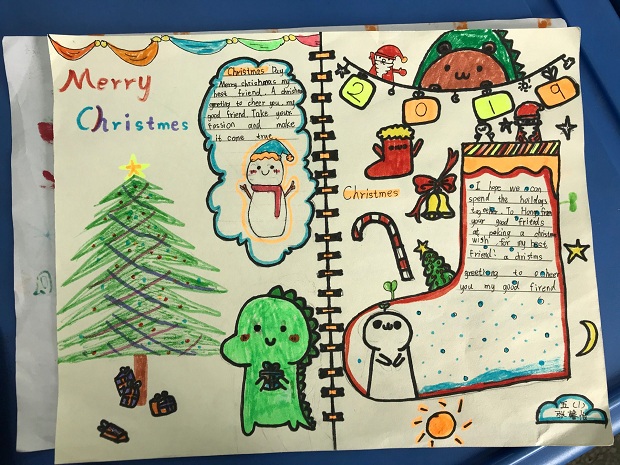 Merry
Christmas
Christmas Day
Merry chrishmas my
best friend. A christmas
greeting to cheer you, my
good friend. Take your
Passion and make
it come true
2 0 1 9
Christmas
I hope we can
spend the holidays
togeter. To Hong from
your good friends
at peking a christmas
wish for my best
Friend! a dristms
greetiong to cheer
you my good firend
五(1)